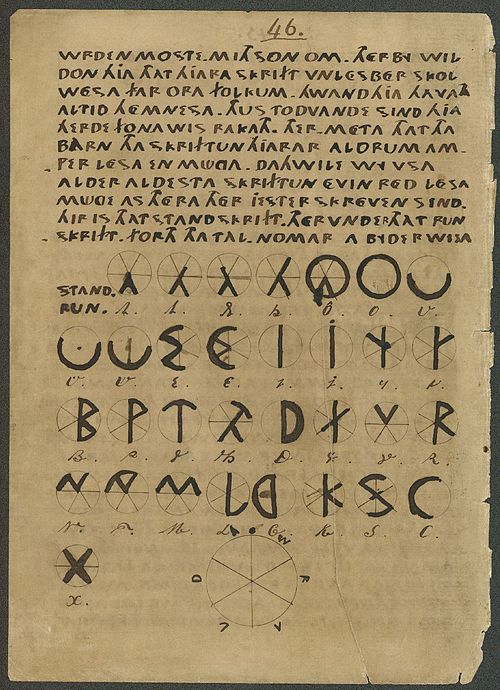 46.
WRDEN MOSTE. MITH SON OM. THERBY WIL
DON HIA THAT HIARA SKRIFT VNLESBER SKOL
WESA FAR ORA FOLKUM. HWAND HIA HAVATH
ALTID HEMNESA. THUS TO DVANDE SIND HIA
HERDE FON A WIS RAKATH. THER. META THAT THA
BARN THA SKRIFTUN HIARAR ALDRUM AM-
PER LESA EN MUGA. DAHWILE WY VSA
ALDER ALDESTA SKRIFTUN EVIN RED LESA
MUGE AS THERA THER IESTER SKREVEN SIND.
HIR IS THAT STANDSKRIFT. THERUNDER THAT RUN
SKRIFT. FORTH THA TAL-NOMAR A BYDER WISA
STAND.
RUN. A. A. O. O. U.
V. W. E. E. I. J. Y.
B. P. T. TH. D. F. V. R.
N. M. L. G. K. S. C.
X.